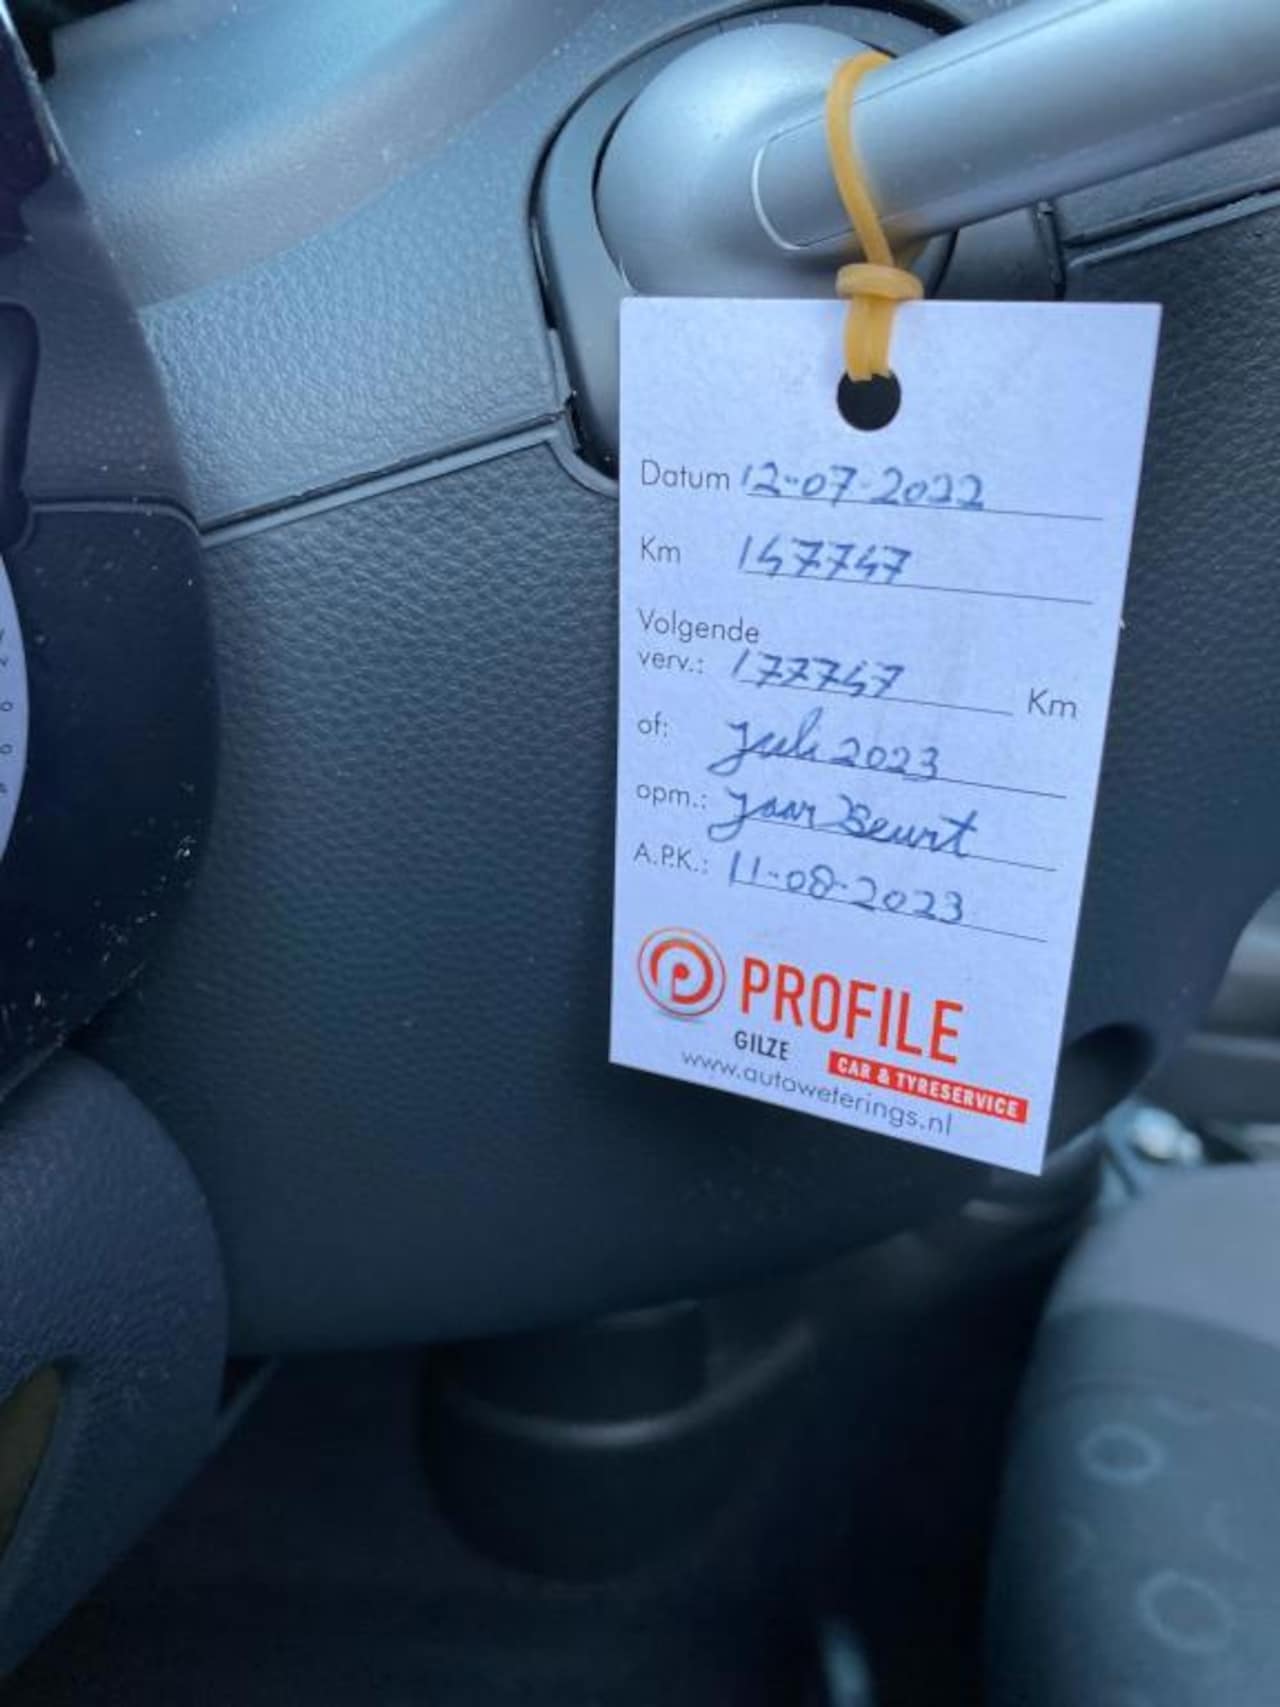 Datum 12-07-2022
Km 147747
Volgende
verv.: 177747 Km
of: juli 2023
opm.: jaar Beurt
A.P.K.: 11-08-2023
PROFILE
GILZE
CAR & TYRESERVICE
www.autoweterings.nl